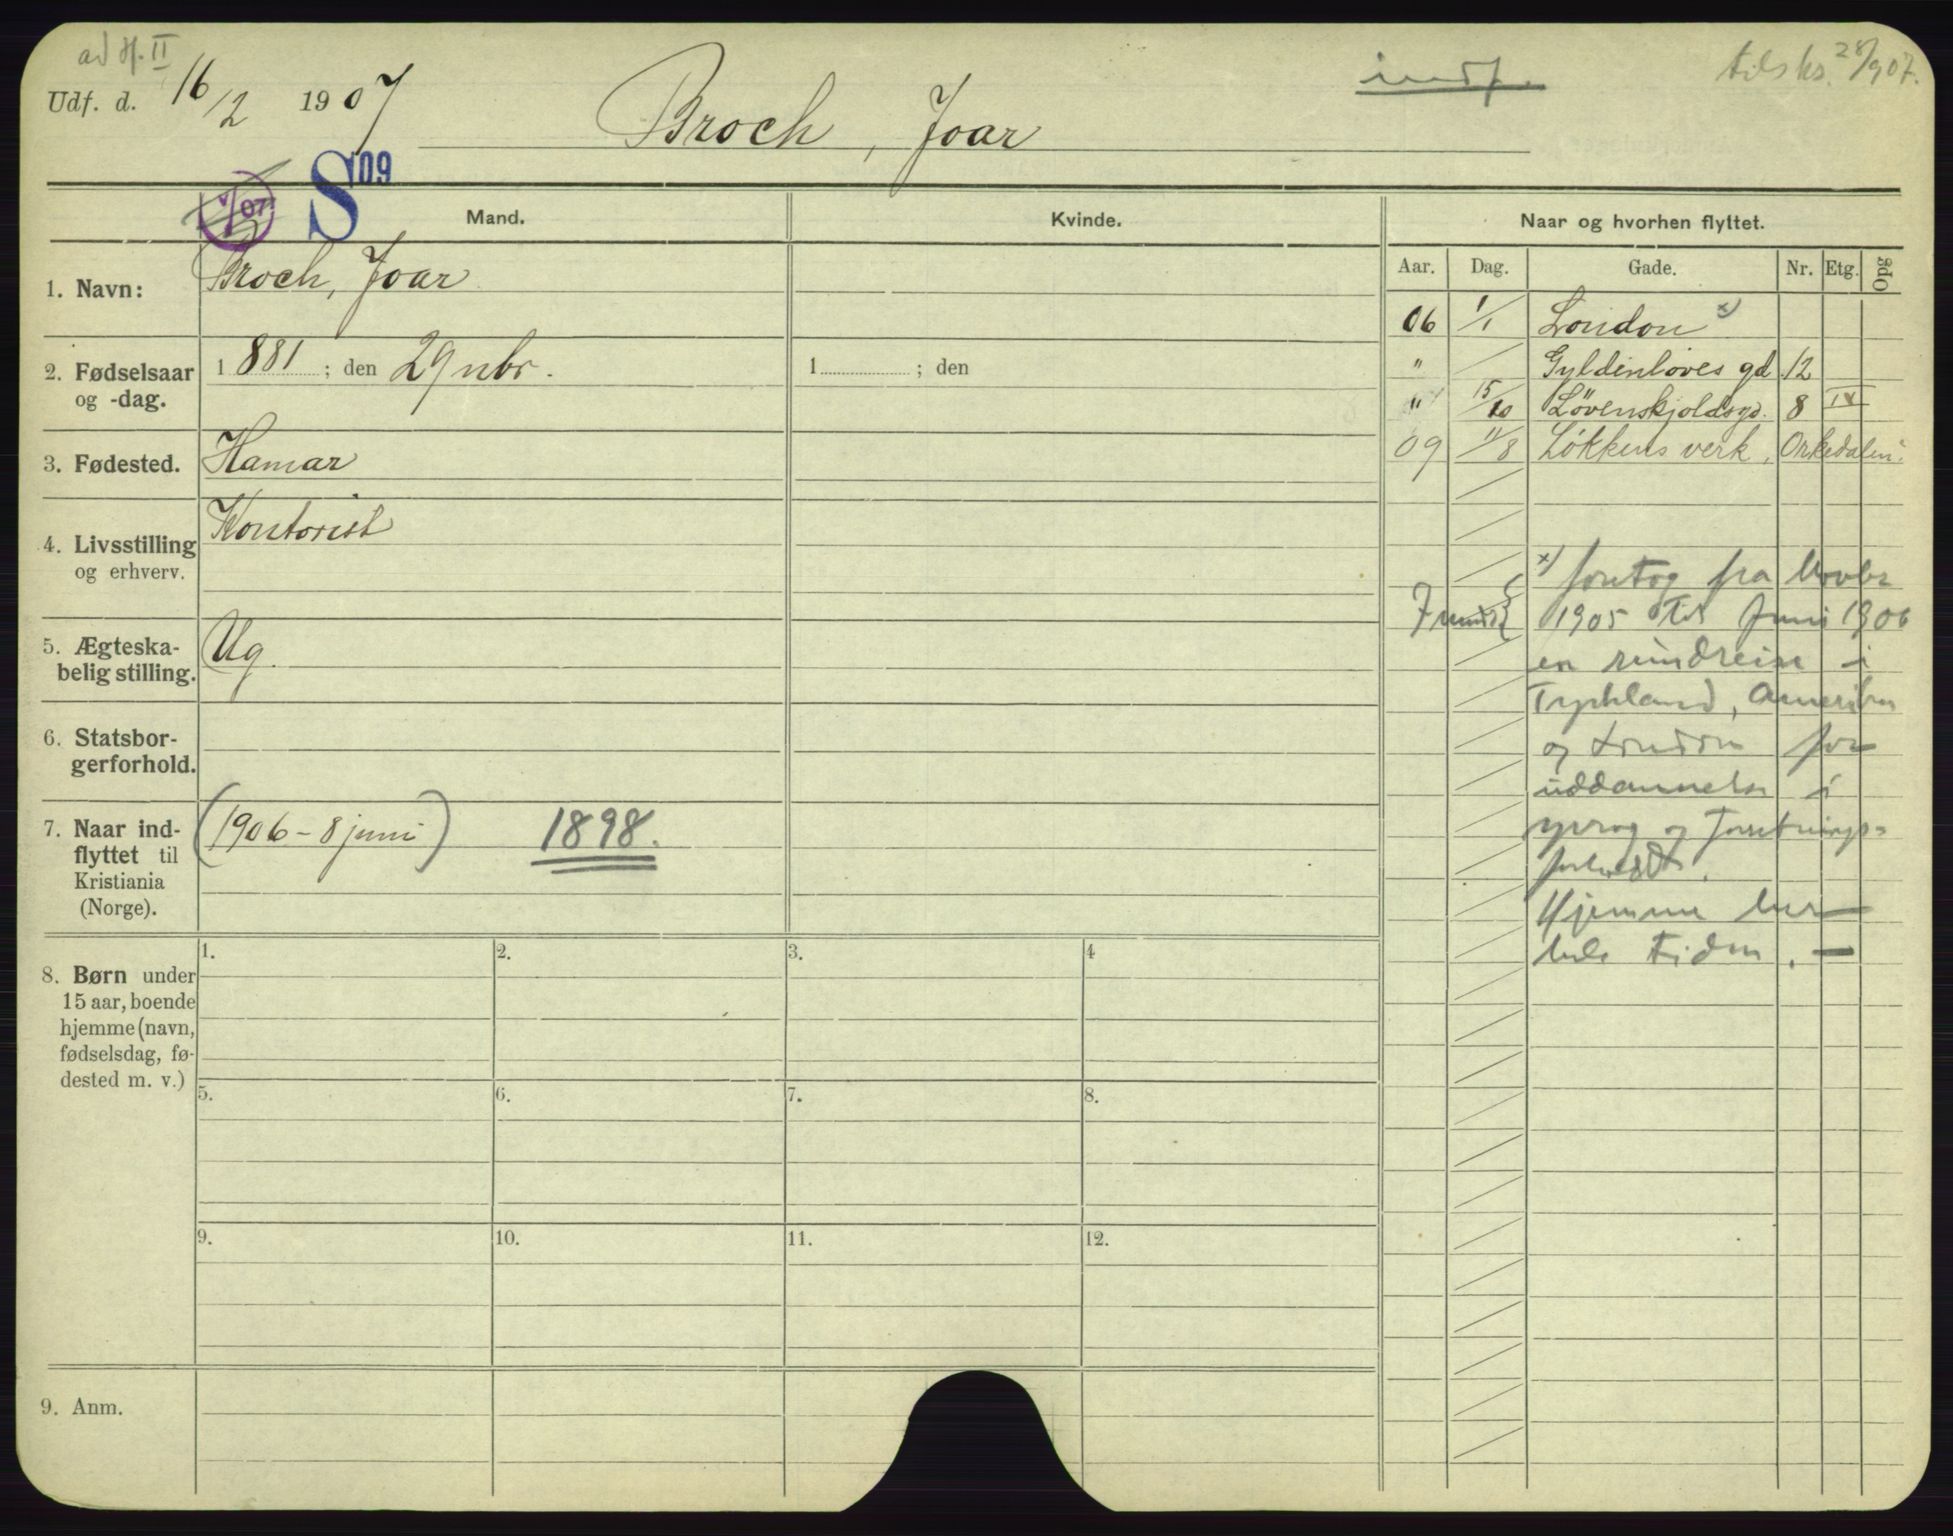 ad Hf. II
Udf. d. 16/2 1907
Broch, Joar
indf.
tilskr. 28/907.
V/07
S 09
Mand.
Kvinde.
Naar og hvorhen flyttet.
Aar. Dag. Gade. Nr. Etg. Opg
1. Navn: Broch, Joar
06 1/1 London x)
2. Fødselsaar og -dag.
1881; den 29 nbr.
1 ; den
" Gyldenløves gd 12
" 15/10 Løvenskjoldsgd. 8 IV
09 11/8 Løkkens verk, Orkedalen.
3. Fødested. Hamar
4. Livsstilling
og erhverv.
Kontorist
x) foretog fra Novbr
1905 til Juni 1906
en rundreise i
Tyskland, Amerika
og London for
uddannelse i
sprog og Forretnings-
forhold.
Hjemme her
hele tiden. —
5. Ægteska-
belig stilling.
Ug.
6. Statsbor-
gerforhold.
7. Naar ind-
flyttet til
Kristiania
(Norge).
(1906 – 8 juni) 1898.
8. Børn under
15 aar, boende
hjemme (navn,
fødselsdag, fø-
dested m. v.)
1. 2. 3. 4
5. 6. 7. 8.
9. 10. 11. 12.
9. Anm.